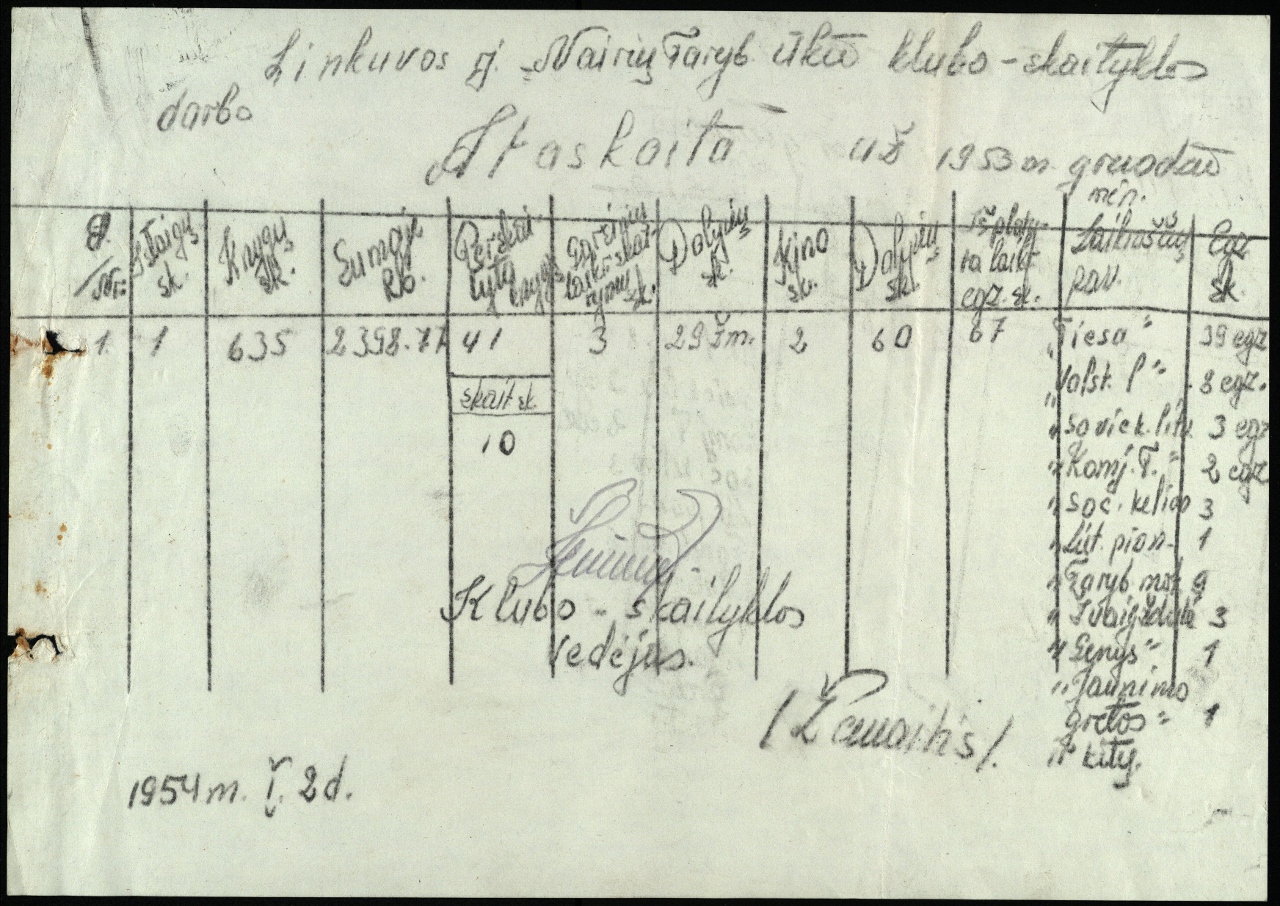 Linkuvos rj. Nairių Taryb. ūkio klubo-skaityklos
darbo
Ataskaita už 1953 m. gruodžio
mėn.
E. Nr. Įstaigų sk. Knygų sk. Sumoje Rb. Perskaityta knygų Garsinių laikr. skaitymų sk. Dalyvių sk. Kino sk. Dalyvių sk. Išplatyta laikr. egz. sk. Laikraščių pav. Egz sk.
1. 1 635 2398.77 41 3 29 žm. 2 60 67 "Tiesa" 39 egz
"Valst. l" 8 egz.
skait sk. "Soviet. litv. 3 egz
10 "Komj. T." 2 egz
"Soc. kelias 3
"Liet. pion. 1
"Taryb. mot. 9
Klubo-skaityklos "Žvaigždutė 3
vedėjas. "Genys" 1
"Jaunimo
/Žemaitis/. gretos" 1
ir kitų.
1954 m. I. 2 d.